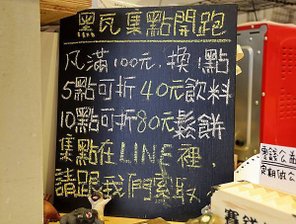 黑瓦集點開跑
凡滿100元,換1點
5點可折40元飲料
10點可折80元鬆餅
集點在LINE裡,
請跟我們索取